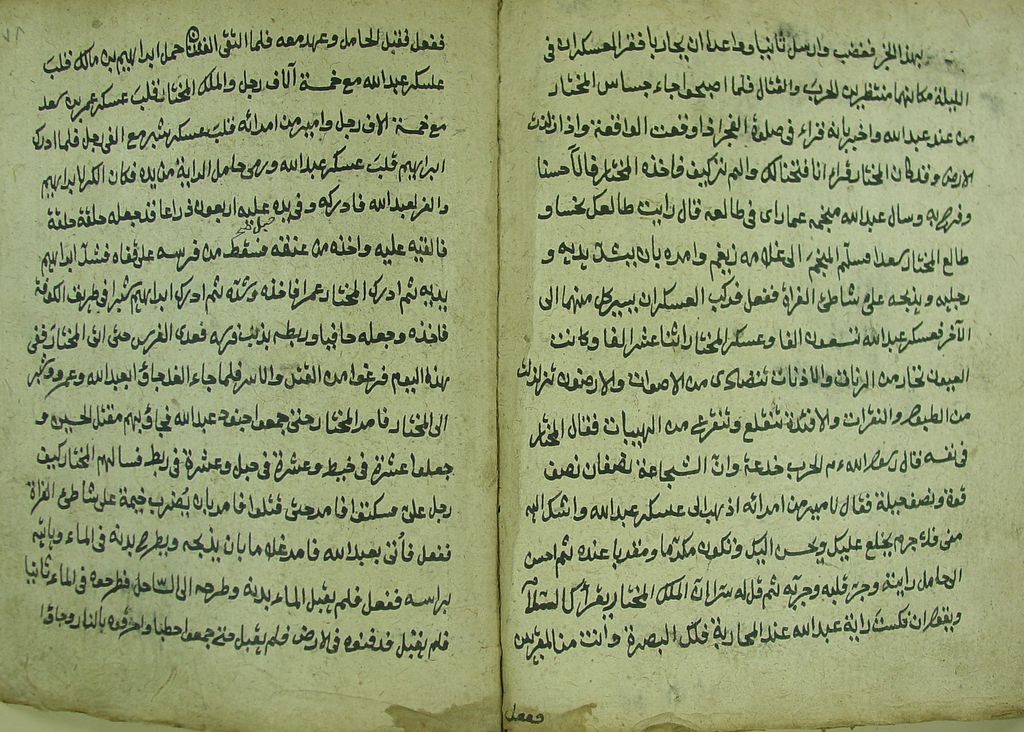 بهذا الخبر فغضب وارسل ثانيا وواعد ان يحاربا فقر العسكران في
الليلة مكانهما منتظرين للحرب والقتال فلما اصبحوا جاء جساس المختار
من عند عبد الله واخبر بانه قراء في صلوة الفجر اذا وقعت الواقعة واذا زلزلت
الارض و قد كان المختار قراء انا فتحنا لك والم تر كيف فاخذه المختار فالا حسنا
وفرح به وسال عبد الله منجمه عما راى في طالعه قال رايت طالعك نحسا و
طالع المختار سعدا فسلم المنجم الى غلامه زيغم وامره بان يشد يديه و
رجليه ويذبحه على شاطئ الفراة ففعل فركب العسكران يسير كل منهما الى
الآخر فعسكر عبد الله تسعون الفا وعسكر المختار اثنا عشر الفا وكانت
العيون تحار من الرنات والاذنات تتصادى من الاصوات والارضون تتزلزل
من الطبول والنقرات والافئدة تتقلع وتتفرغ من الهيبات فقال المختار
في نفسه قال رسول الله عم الحرب خدعة وان الشجاعة نصفان نصف
قوة ونصف حيلة فقال لامير من امرائه اذهب الى عسكر عبد الله واشك اليه
مني فلا جرم يخلع عليك ويحسن اليك وتكون مكرما ومقربا عنده ثم احسن
الى حامل رايته وجر قلبه وجربه ثم قل له سرا ان الملك المختار يقرئك السلام
ويقول ان نكست راية عبد الله عند المحاربة فلك البصرة وانت من المقربين
ففعل
ففعل فقبل الحامل وعهد معه فلما التقى الفئتان حمل ابراهيم بن مالك قلب
عسكر عبد الله مع خمسة آلاف رجل والملك المختار قلب عسكر عمر بن سعد
مع خمسة الاف رجل وامير من امرائه قلب عسكر شبر مع الفي رجل فلما ادرك
ابراهيم قلب عسكر عبد الله ورمى حامل الراية من يده فكان الكر لابراهيم
والفر لعبد الله فادركه وفي يده حبل عليه اربعون ذراعا قد جعله حلقة حلقة
فالقيه عليه واخذه من عنقه فسقط من فرسه على قفاه فشد ابراهيم
يديه ثم ادرك المختار عمرا فاخذه وشده ثم ادرك ابراهيم شبرا في طريق الكوفة
فاخذه وجعله حافيا وربطه بذنب فرسه فعدى الفرس حتى اتى المختار ففي
هذه اليوم فرغوا من القتل والاسر فلما جاء الغد جاؤا بعبد الله وعمرو وشبر
الى المختار فامر المختار حتى جمعوا جنود عبد الله فجاؤ بهم مقتل الحسين و
جعلوا عشرة في خيط وعشرة في حبل وعشرة في ربط فسالهم المختار كيف
رجل على مسكنتوا فامر حتى قتلوا فامر بان يضرب خيمة على شاطئ الفراة
ففعل فأتى بعبد الله فامر غلاما بان يذبحه ويطرح بدنه في الماء وياتيه
براسه ففعل فلم يقبل الماء بدنه وطرحه الى الساحل فطرحوه في الماء ثانيا
فلم يقبل فدفنوه في الارض فلم يقبل فتى جمعوا حطبا واحرقوه بالنار وجاؤا